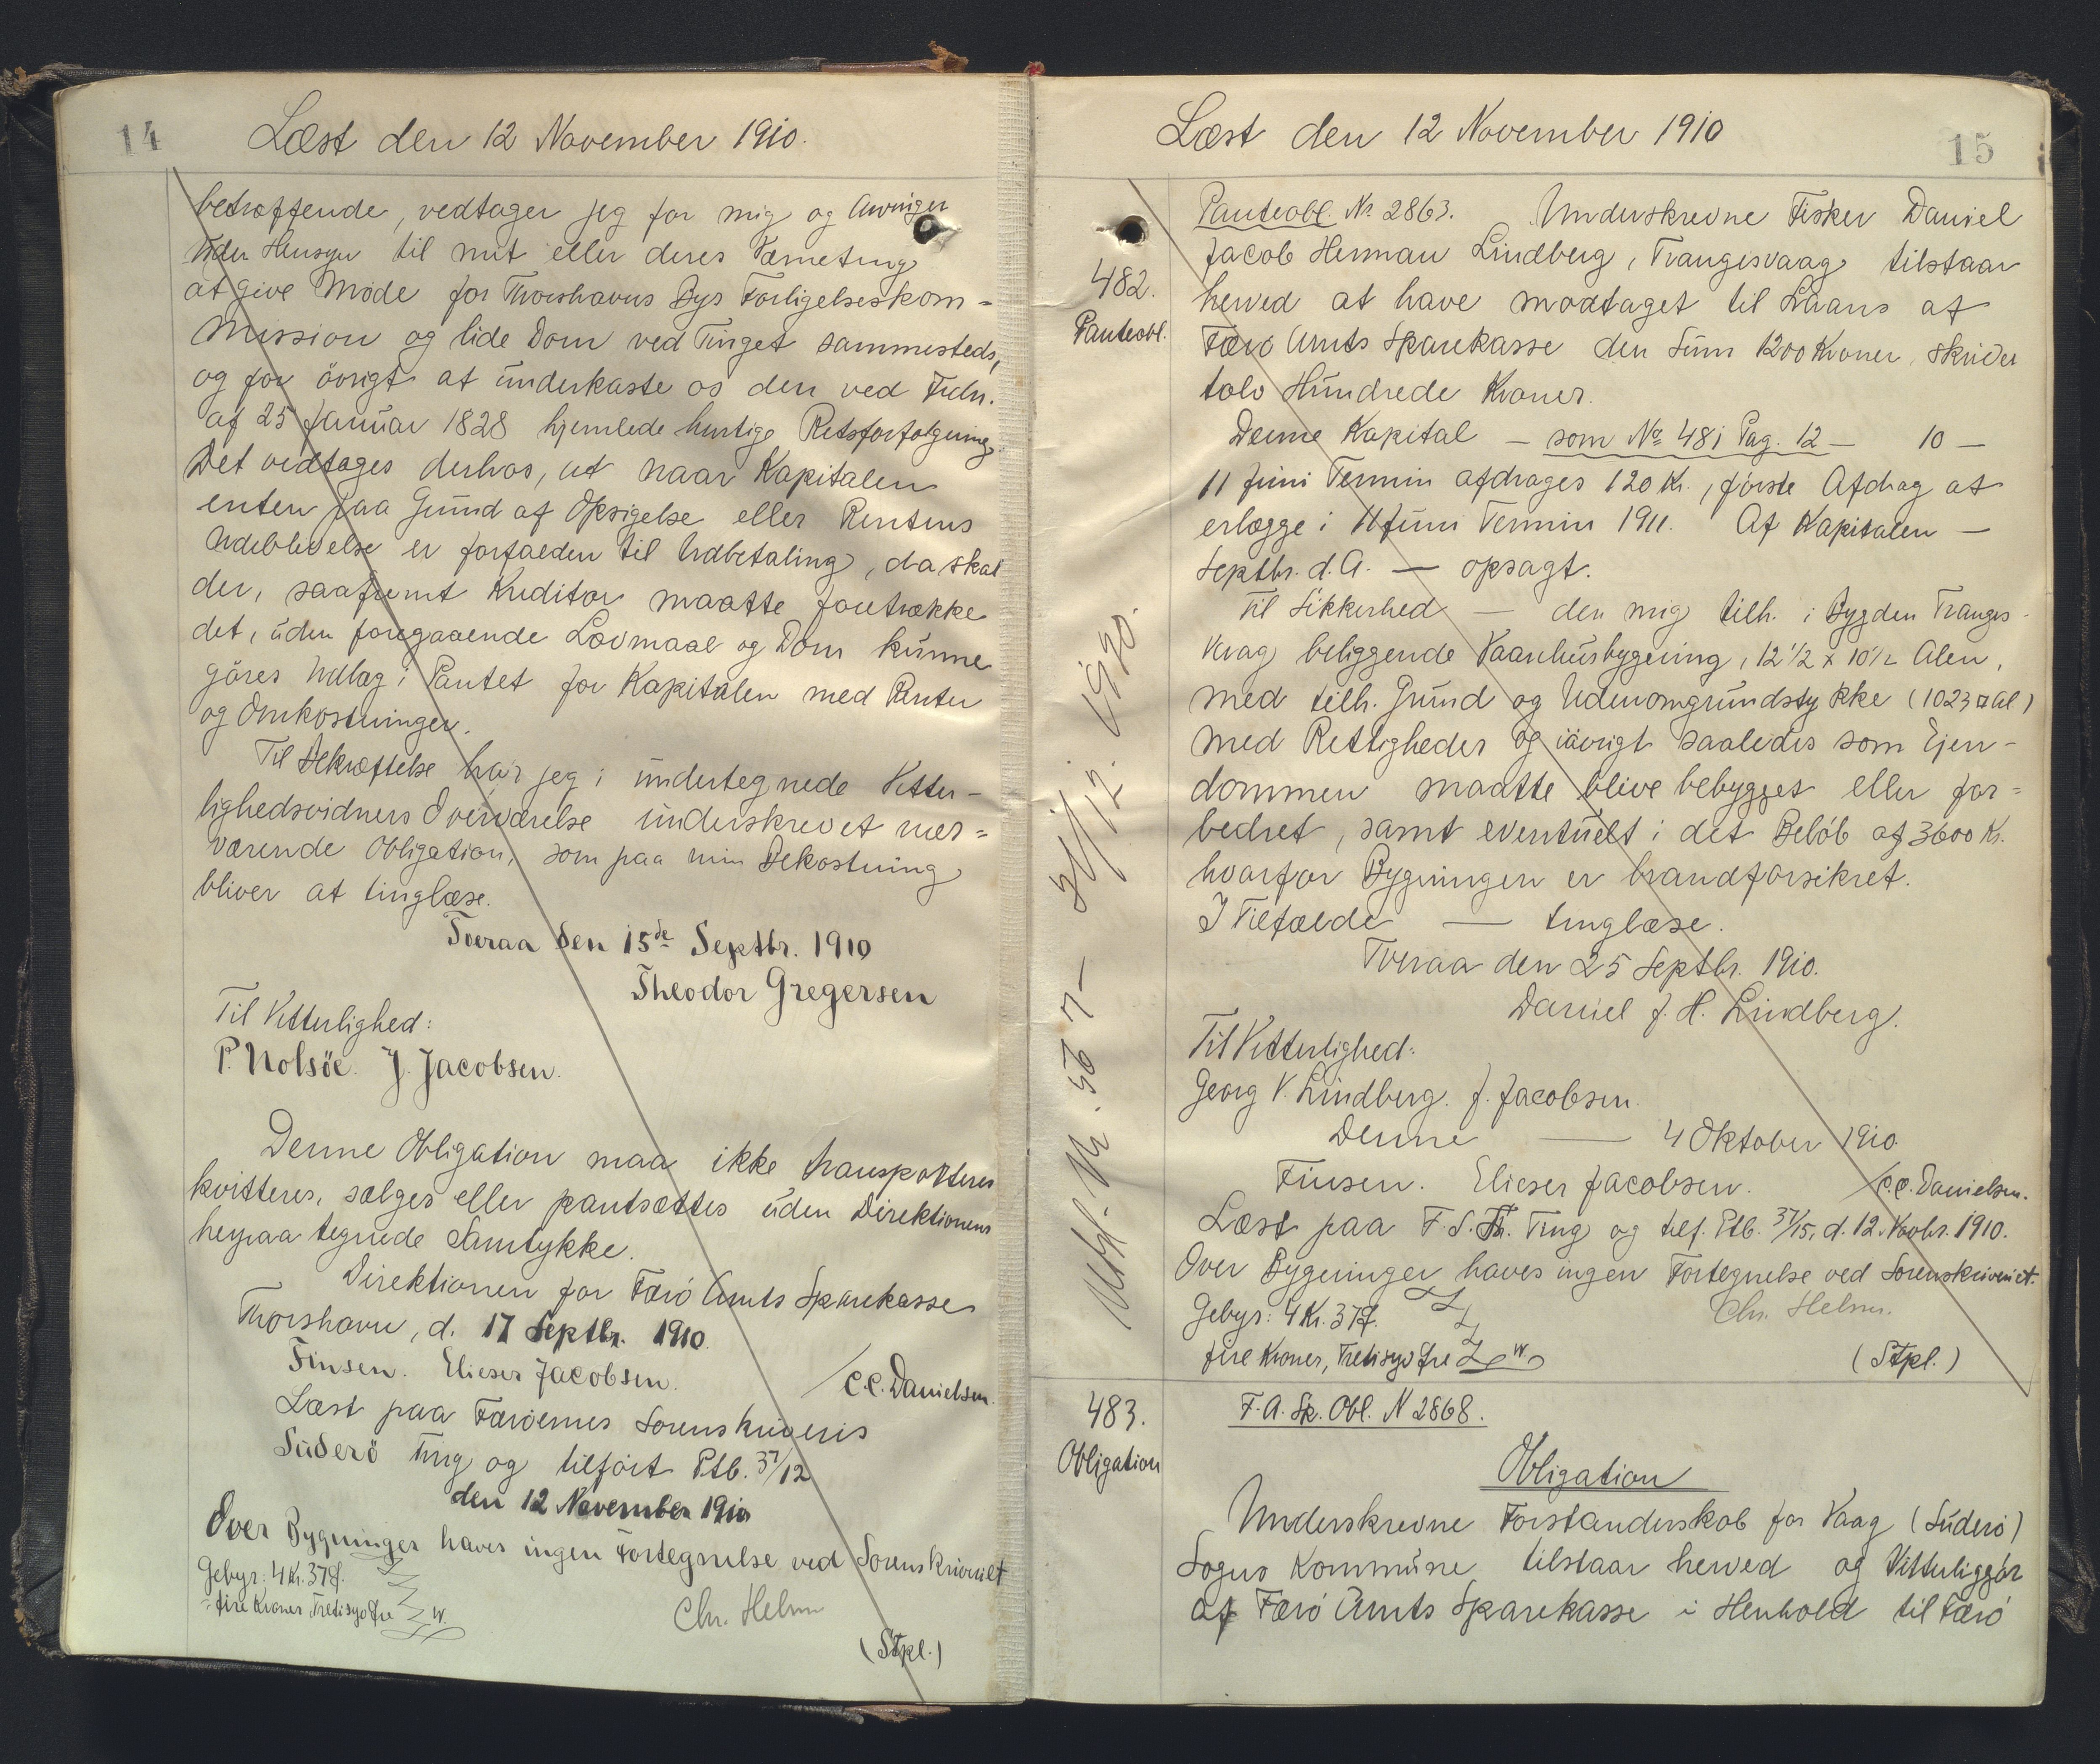 14
Læst den 12 November 1910.
betræffende, vedtager jeg for mig og Arvinger
uden Hensyn til mit eller deres Værneting
at give Møde for Thorshavns Bys Forligelseskom-
mission og lide Dom ved Tinget sammesteds,
og for övrigt at underkaste os den ved Frdn.
af 25 Januar 1828 hjemlede hurtige Retsforfølgning.
Det vedtages derhos, at naar Kapitalen
enten paa Grund af Opsigelse eller Rentens
Udeblivelse er forfalden til Udbetaling, da skal
der, saafremt Kreditor maatte foretrække
det, uden foregaaende Lovmaal og Dom kunne
göres Udlæg i Pantet for Kapitalen med Renter
og Omkostninger.
Til Bekræftelse har jeg i undertegnede Vitter-
lighedsvidners Overværelse underskrevet nær=
værende Obligation, som paa min Bekostning
bliver at tinglæse.
Tveraa den 15de Septbr. 1910
Theodor Gregersen
Til Vitterlighed:
P. Nolsöe. J. Jacobsen.
Denne Obligation maa ikke transporteres
kvitteres, sælges eller pantsættes uden Direktionens
herpaa tegnede Samtykke.
Direktionen for Færö Amts Sparekasse
Thorshavn, d. 17 Septbr. 1910.
Finsen. Elieser Jacobsen.
/C.C. Danielsen.
Læst paa Færöernes Sorenskriveris
Suderö Ting og tilført Ptb. 37/12
den 12 November 1910
Over Bygninger haves ingen Fortegnelse ved Sorenskriveriet
Gebyr: 4 Kr. 37 Ø.
fire Kroner Tretisyv Øre
W.
Chr. Helm
(Stpl.)
Læst den 12 November 1910
15
482.
Panteobl.
Panteobl. Nr. 2863. Underskrevne Fisker Daniel
Jacob Herman Lindberg, Trangisvaag tilstaar
herved at have modtaget til Laans af
Færö Amts Sparekasse den Sum 1200 Kroner, skriver
tolv Hundrede Kroner.
Denne Kapital — som No 481 Pag. 12 — 10 —
11 Juni Termin afdrages 120 Kr., første Afdrag at
erlægge i 11 Juni Termin 1911. Af Kapitalen —
Septbr. d. A. — opsagt.
Til Sikkerhed — den mig tilh. i Bygden Trangis-
vaag beliggende Vaanhusbygning, 12 1/2 x 10 1/2 Alen,
med tilh. Grund og Udenomgrundstykke (1023 □ Al)
med Rettigheder og iövrigt saaledes som Ejen-
dommen maatte blive bebygget eller for=
bedret, samt eventuelt i det Beløb af 3600 Kr.
hvorfor Bygningen er brandforsikret.
I Tilfælde — tinglæse.
Tveraa den 25 Septbr. 1910.
Daniel J. H. Lindberg.
Til Vitterlighed:
Georg V. Lindberg. J. Jacobsen.
Denne — 4 Oktober 1910
Finsen. Elieser Jacobsen.
/C.C. Danielsen.
Læst paa F. S. Th. Ting og tilf. Ptb. 37/15, d. 12. Novbr. 1910.
Over Bygninger haves ingen Fortegnelse ved Sorenskriveriet.
Gebyr: 4 Kr. 37 Ø.
Chr. Helm.
fire Kroner, Tretisyv Øre
W
(Stpl.)
483.
Obligation
F. A. Sp. Obl. N 2868.
Obligation
Underskrevne Forstanderskab for Vaag (Suderö)
Sogns Kommune tilstaar herved og Vitterliggör
af Færö Amts Sparekasse i Henhold til Færö